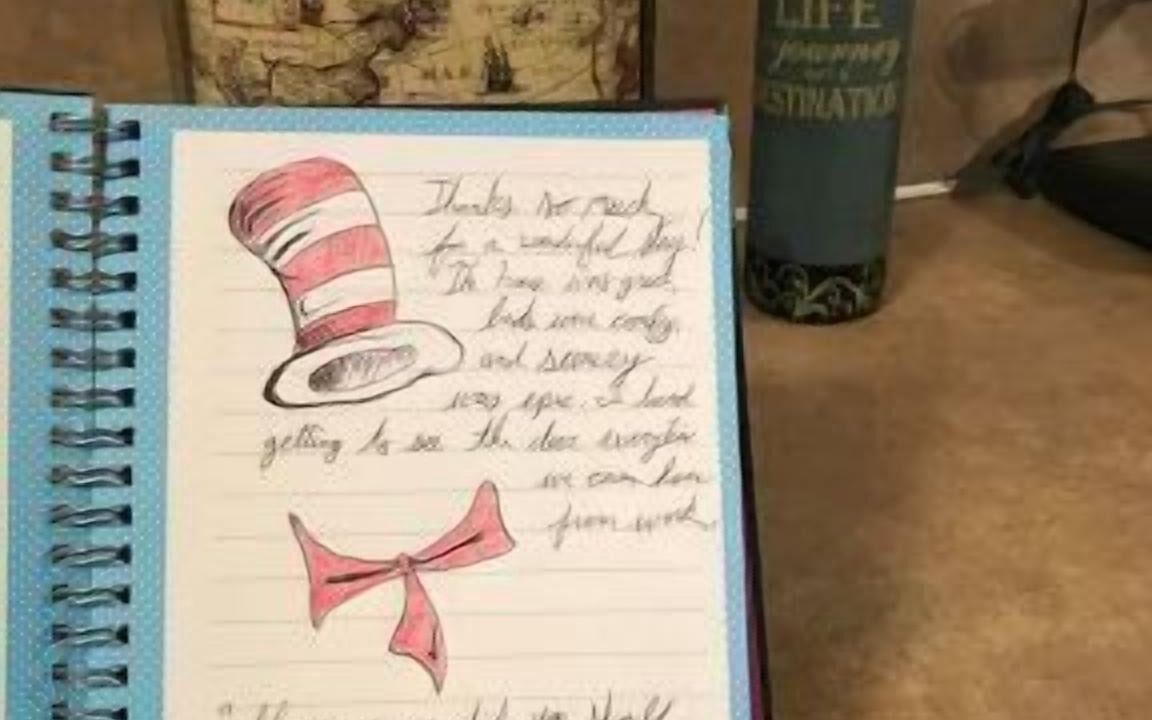 LIFE
journey
Thanks so much
for a wonderful stay!
The house was great,
beds were comfy,
and scenery
was epic. I loved
getting to see the deer everytime
we came home
from work.